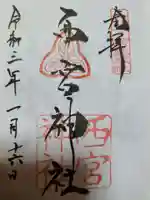 奉拝
西宮神社
西宮
神社
令和三年一月十六日